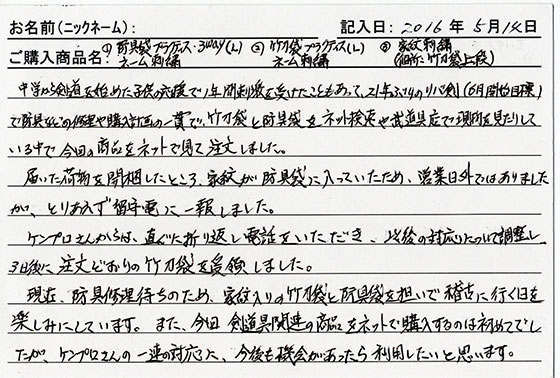 お名前(ニックネーム): 記入日: 2016年5月14日
ご購入商品名: ①防具袋プラクティス・3way(L) ②竹刀袋プラクティス(L) ③家紋刺繍
ネーム刺繍 ネーム刺繍 (個所:竹刀袋上段)
中学から剣道を始めた子供の応援で1年間刺激を受けたこともあって、21年ぶりのリバ剣(6月開始目標)
で防具などの修理や購入計画の一貫で、竹刀袋と防具袋をネット検索や武道具店で現物を見たりして
いる中で今回の商品をネットで見て注文しました。
届いた荷物を開梱したところ、家紋が防具袋に入っていたため、営業日外ではありました
が、とりあえず留守電に一報しました。
ケンプロさんからは、直ぐに折り返し電話をいただき、以後の対応について調整し、
3日後に注文どおりの竹刀袋を受領しました。
現在、防具修理待ちのため、家紋入りの竹刀袋と防具袋を担いで稽古に行く日を
楽しみにしています。また、今回剣道具関連の商品をネットで購入するのは初めてでし
たが、ケンプロさんの一連の対応に、今後も機会があったら利用したいと思います。